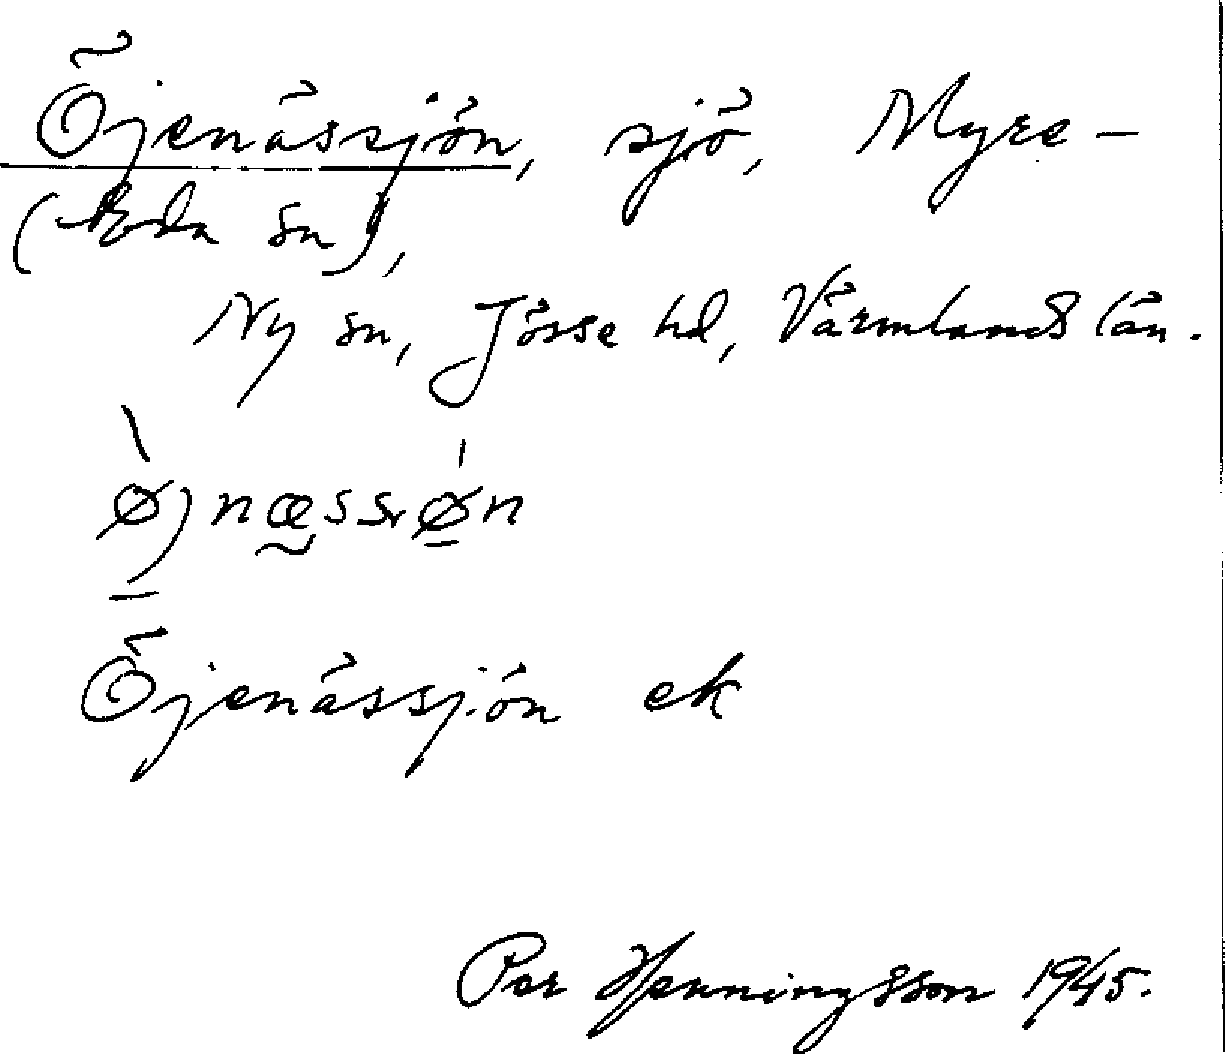 Öjenässjön, sjö, Myre-
(Eda sn),
Ny sn, Jösse hd, Värmlands län.
Öjenässjön ek
Per Henningsson 1945.